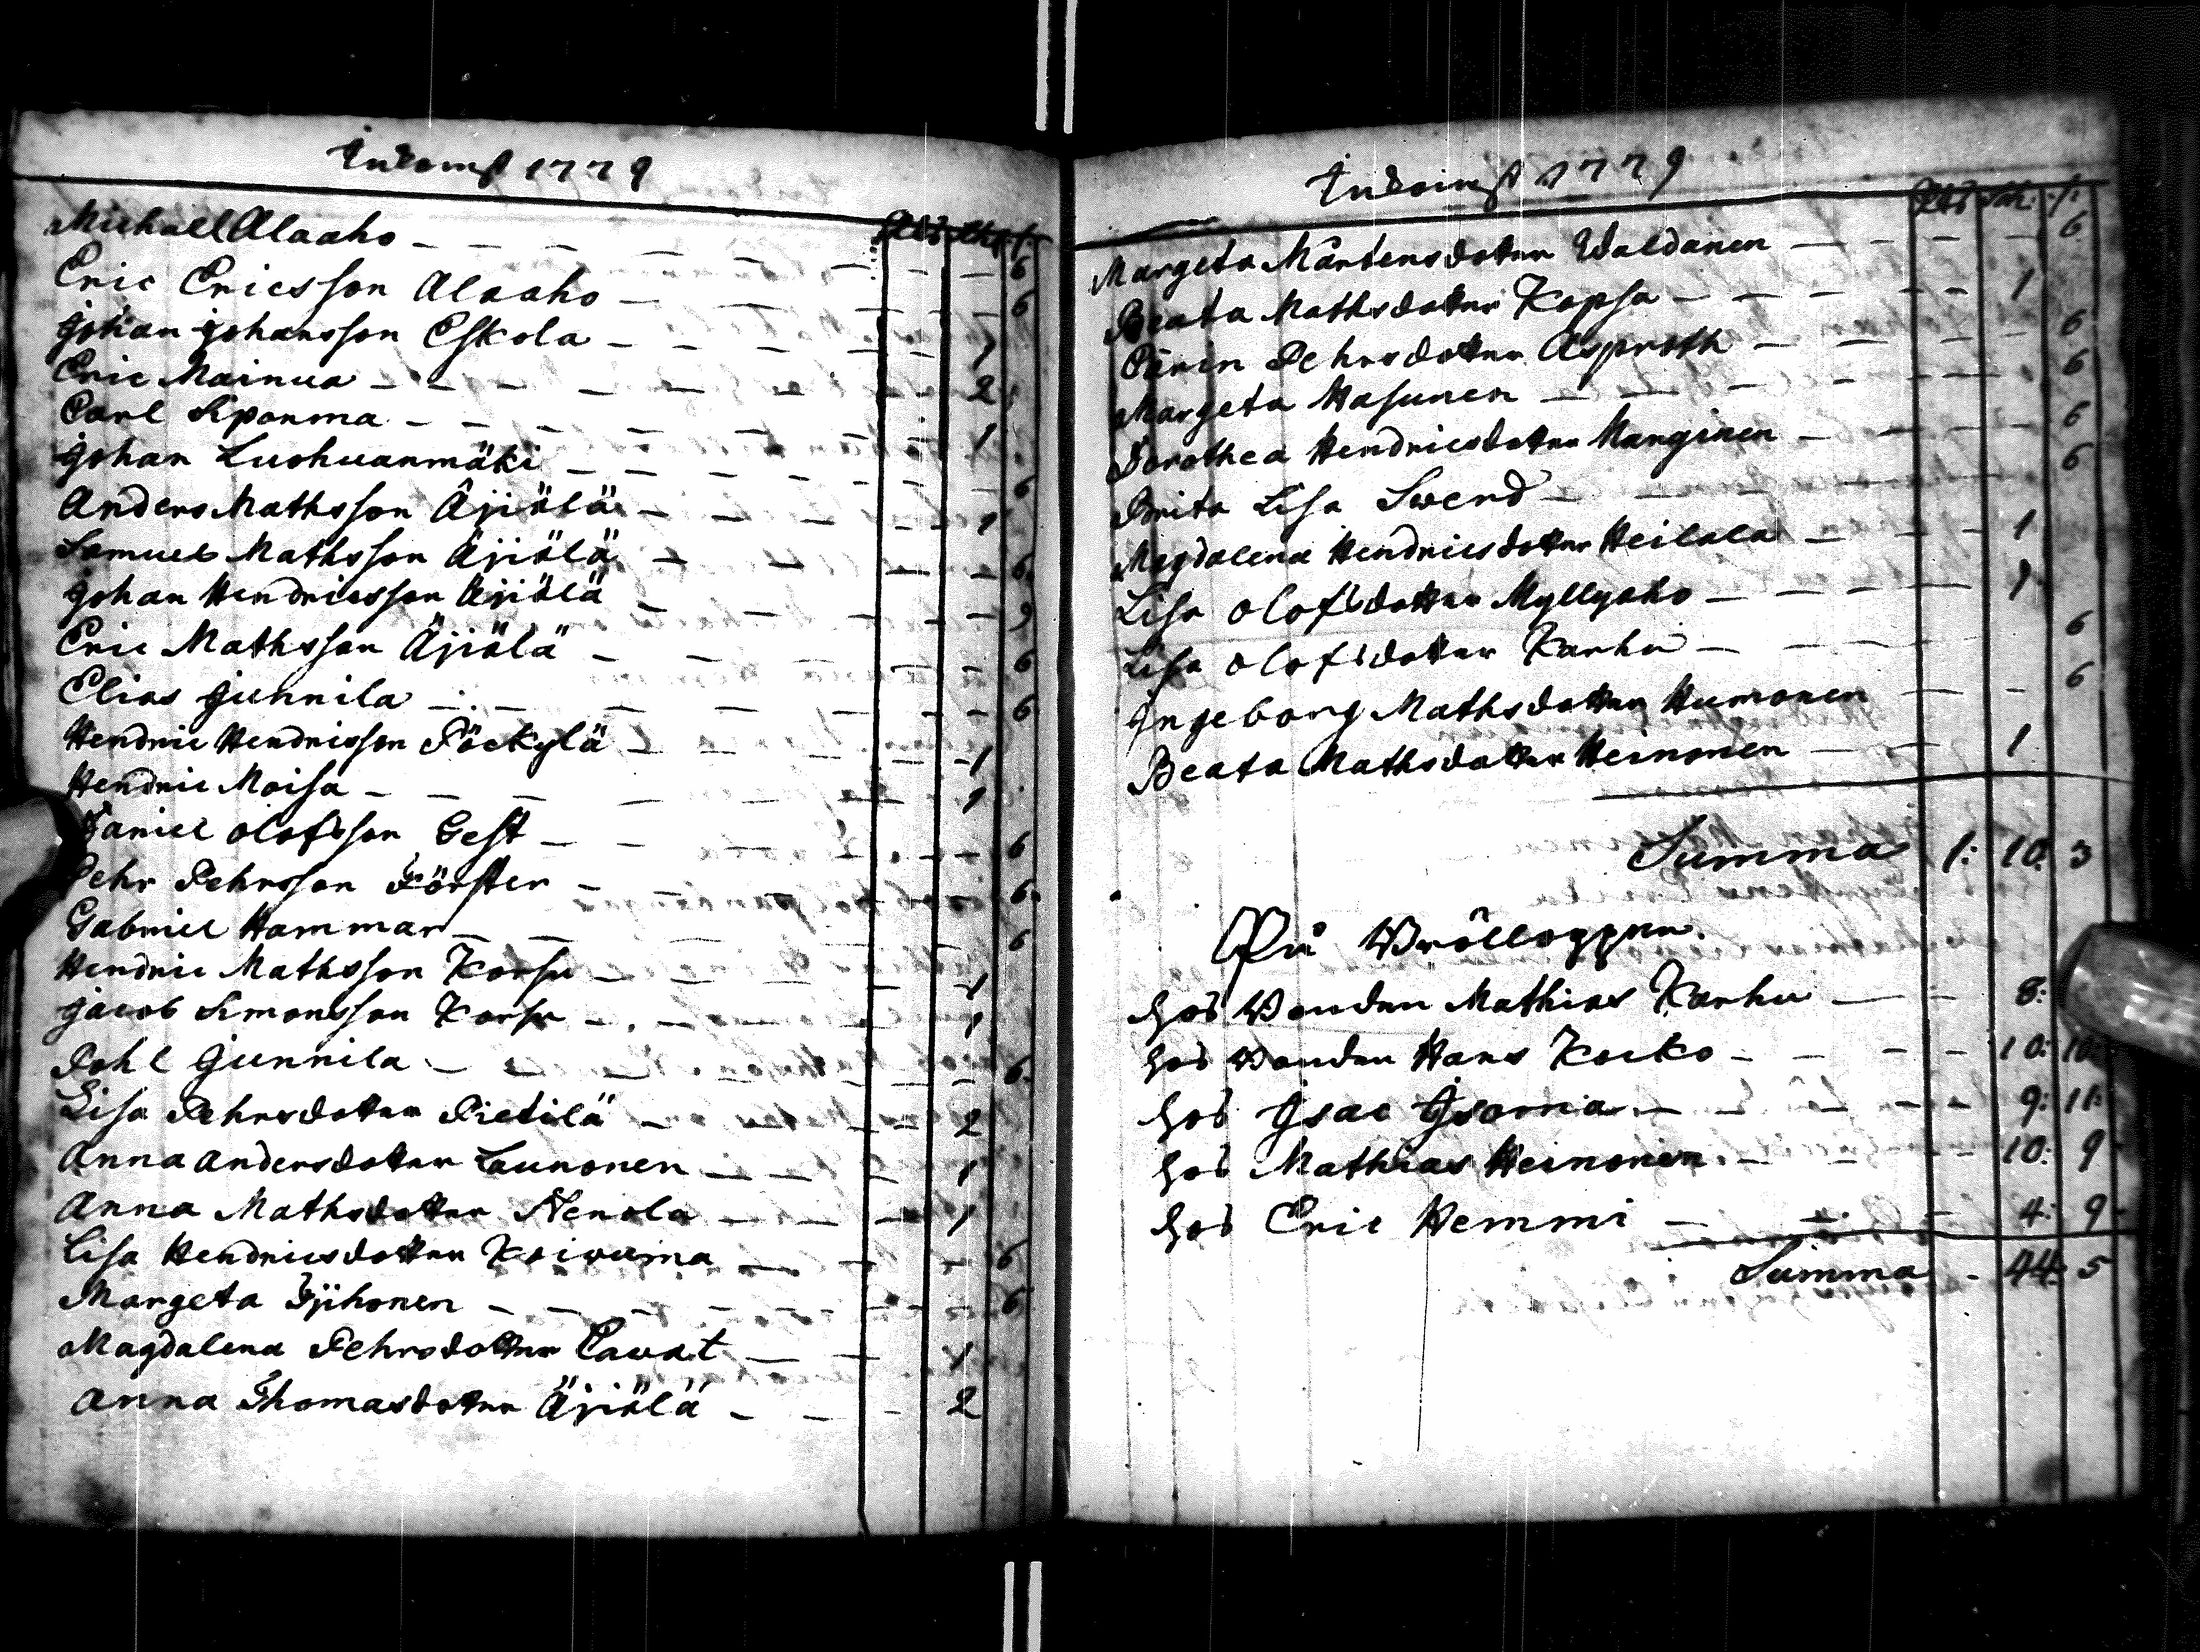 Inkomst 1779
Rd. sk. r.
Michael Alaaho - - - 6
Eric Ericsson Alaaho - - - 6
Johan Johansson Eskola - - - 1
Eric Mainua - - - 2
Carl Siponma - - - 1
Johan Luohuanmäki - - - 6
Anders Mathsson Äjiälä - - - 1
Samuel Mathsson Äjiälä - - - 6
Johan Hendricsson Äjiälä - - - 9
Eric Mathsson Äjiälä - - - 6
Elias Junnila - - - 6
Hendric Hendricsson Pöckylä - - - 1
Hendric Moisa - - - 1
Daniel Olofsson Gest - - - 6
Pehr Pehrsson Förster - - - 6
Gabriel Hammar - - - 6
Hendric Mathsson Korsu - - - 1
Jacob Simonsson Korsu - - - 1
Pohl Junnila - - - 6
Lisa Pehrsdotter Pietilä - - - 2
Anna Andersdotter Launonen - - - 1
Anna Mathsdotter Nenola - - - 1
Lisa Hendricsdotter Koivuma - - - 6
Margeta - - - 6
Magdalena Pehrsdotter Cavat - - - 1
Anna Thomasdotter Äjiälä - - - 2
Inkomst 1779
Rd. sk. r.
Margeta Mårtensdotter Waldanen - - - 6
Beata Mathsdotter Kopsa - - - 1
Carin Pehrsdotter Asproth - - - 6
Margeta Hasunen - - - 6
Dorothea Hendricsdotter Manginen - - - 6
Brita Lisa Swerd - - - 6
Magdalena Hendricsdotter Heilala - - - 1
Lisa Olofsdotter Myllyaho - - - 1
Lisa Olofsdotter Karhu - - - 6
Ingeborg Mathsdotter Humonen - - - 6
Beata Mathsdotter Heinonen - - - 1
Summa 1: 10: 3
På Bröllopper.
hos Bonden Mathias Karhu - - 8:
hos Bonden Hans Kocko - - - 10: 10
hos Isac Isarna - - - 9: 11:
hos Mathias Heinonen - - - 10: 9
hos Eric Hemmi - - - 4: 9
Summa - 44: 5